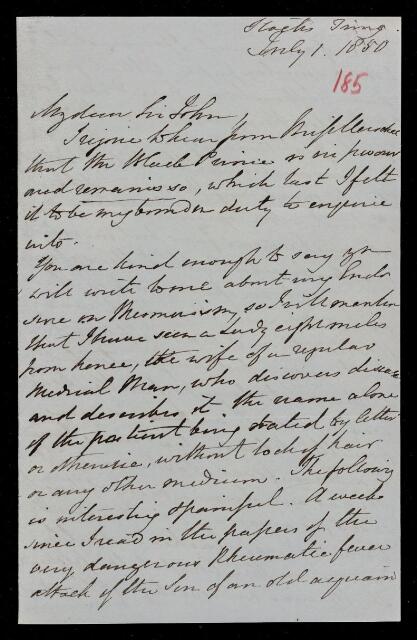 Tring.
July 1. 1850
185
My dear Sir John
I rejoice to hear from Miss
that the Black Prince is in power
and remains so, which last I felt
it to be my bounden duty to enquire
into.
You are kind enough to say yr
will write to me about my Enclo
sure on Mesmerism, so I will mention
that I have seen a Lady eight miles
from hence, the wife of a regular
Medical Man, who discovers disease
and describes it the name alone
of the patient being stated by letter
or otherwise, without lock of hair
or any other medium. The following
is interesting & painful. A week
since I read in the papers of the
very dangerous Rheumatic fever
attack of the Son of an old acquain